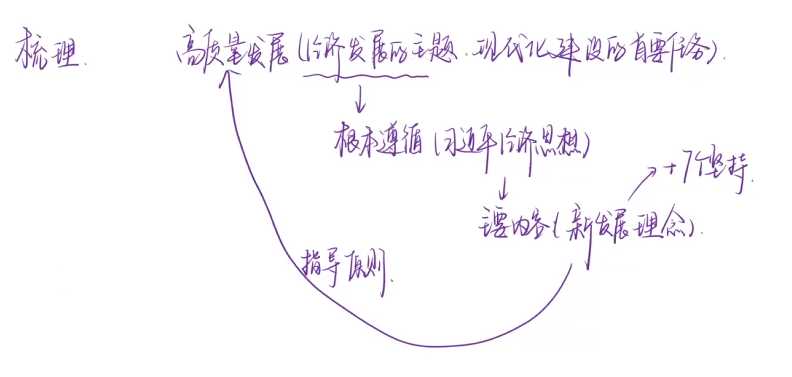 梳理. 高质量发展(经济发展的主题.现代化建设的首要任务).
根本遵循(习近平经济思想)
+7个坚持.
主要内容(新发展理念).
指导原则.